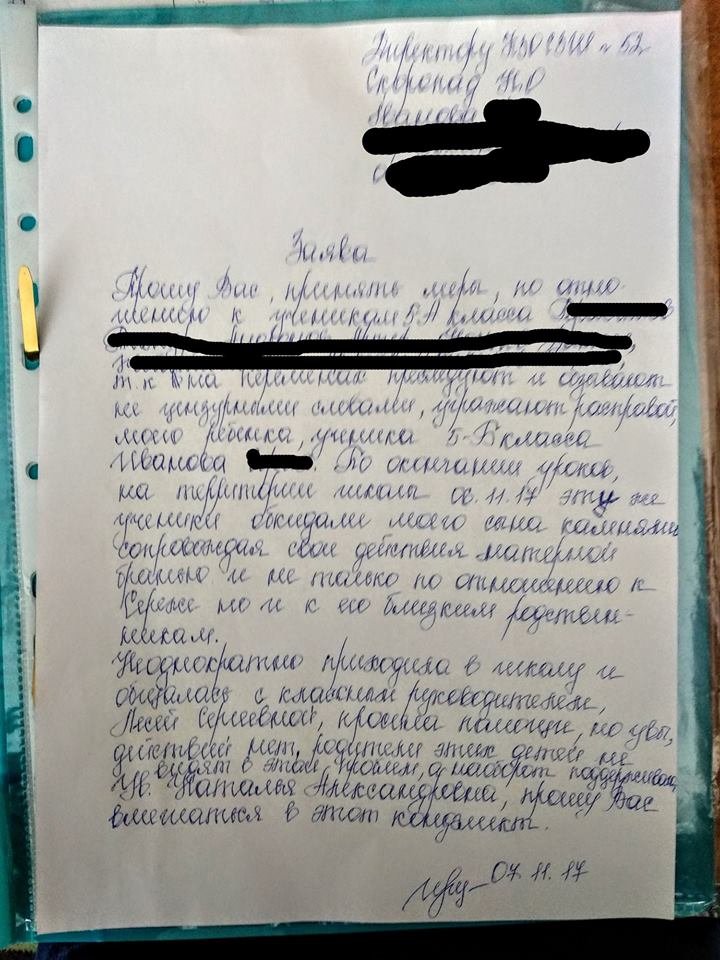 Директору КЗОСЗШ №52
Скоропад Н.О
Иванова
Заява
Прошу Вас, принять меры, по отно-
шению к ученикам 5-А класса
т.к на переменах преследуют и обзывают
не цензурными словами, угражают расправой,
моего ребенка, ученика 5-В класса
Иванова По окончании уроков,
на территории школы 06.11.17 эти же
ученики обкидали моего сына камнями
сопровождая свои действия матерной
бранью и не только по отношению к
Сереже но и к его близким родствен-
никам.
Неоднократно приходила в школу и
общалась с классным руководителем,
Лесей Сергеевной, просила помощи, но увы,
действий нет, родители этих детей не
видят в этом проблем, а наоборот поддерживают
Ув. Наталья Александровна, прошу Вас
вмешаться в этот конфликт.
07.11.17